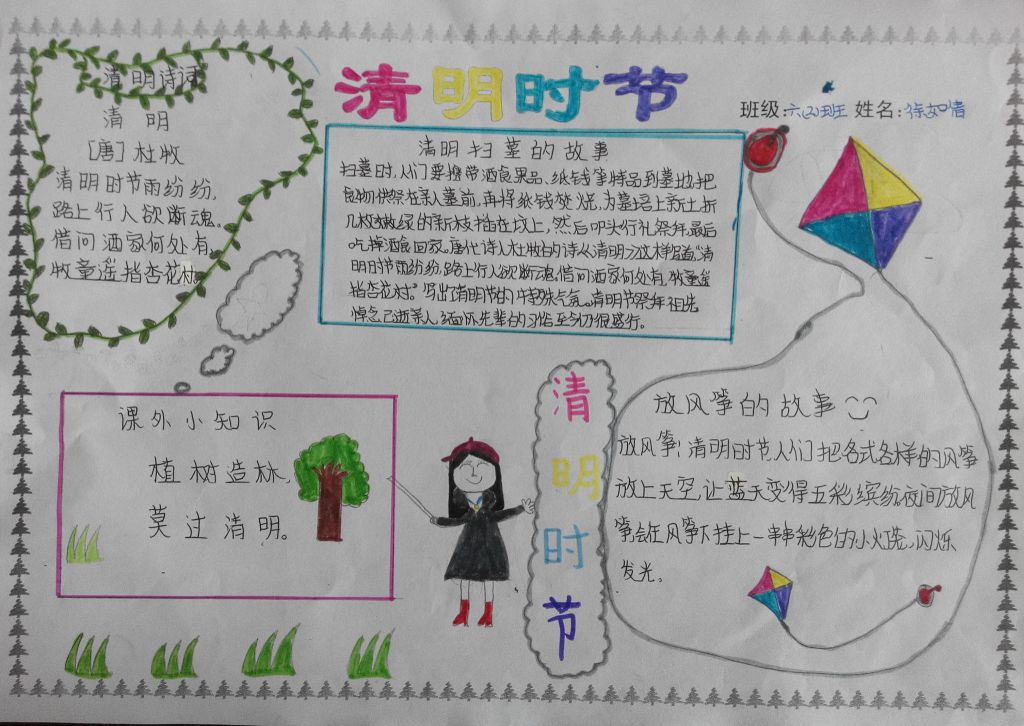 清明时节
班级:六(2)班 姓名:徐如惜
清明诗词
清 明
[唐]杜牧
清明时节雨纷纷,
路上行人欲断魂。
借问酒家何处有,
牧童遥指杏花村。
清明扫墓的故事
扫墓时,人们要携带酒食果品、纸钱等物品到墓地,把
食物供祭在亲人墓前,再将纸钱焚烧,为坟墓上新土,折
几枝嫩绿的新枝插在坟上,然后叩头行礼祭拜,最后
吃掉酒食回家。唐代诗人杜牧的诗《清明》这样写道:"清
明时节雨纷纷,路上行人欲断魂。借问酒家何处有,牧童遥
指杏花村。"写出了清明节的特殊气氛。清明节祭拜祖先
悼念已逝亲人缅怀先辈的习俗至今仍很盛行。
课外小知识
植树造林,
莫过清明。
清
明
时
节
放风筝的故事
放风筝!清明时节人们把各式各样的风筝
放上天空,让蓝天变得五彩缤纷夜间放风
筝会在风筝下挂上一串串彩色的小灯笼,闪烁
发光。